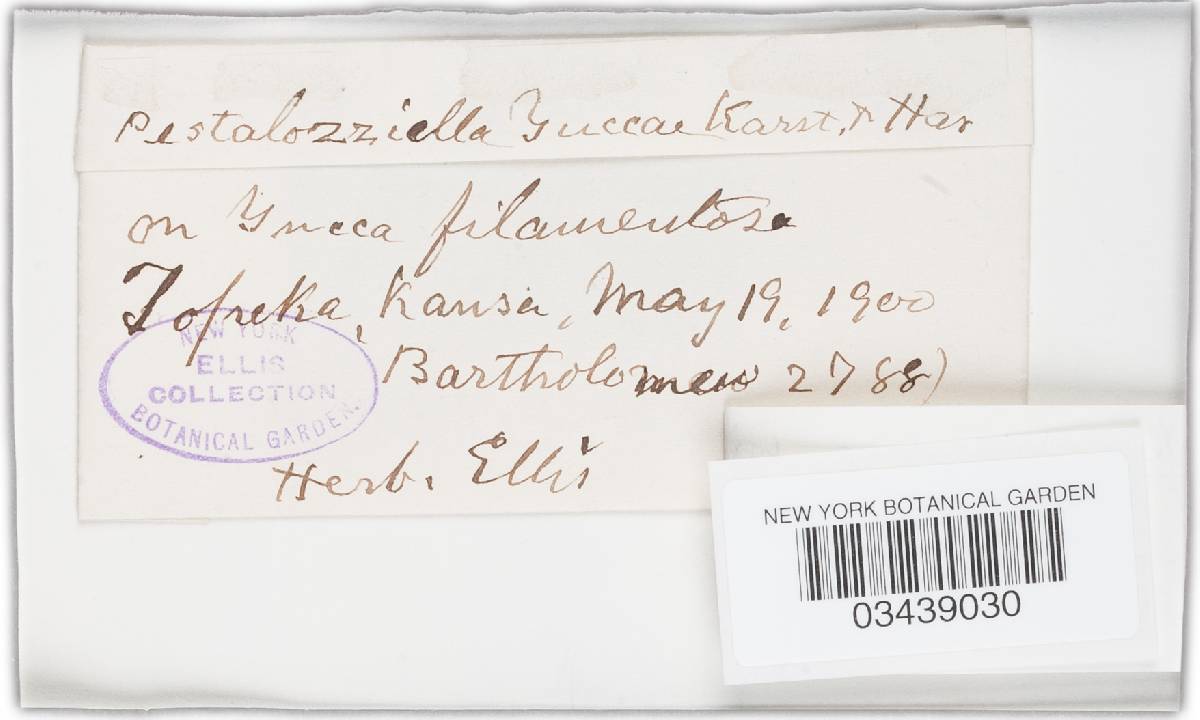 Pestalozziella Yuccae Karst. & Har
on Yucca filamentosa
Topeka, Kansa, May 19, 1900
Bartholomew 2788)
NEW YORK
ELLIS
COLLECTION
BOTANICAL GARDEN.
Herb. Ellis
NEW YORK BOTANICAL GARDEN
03439030